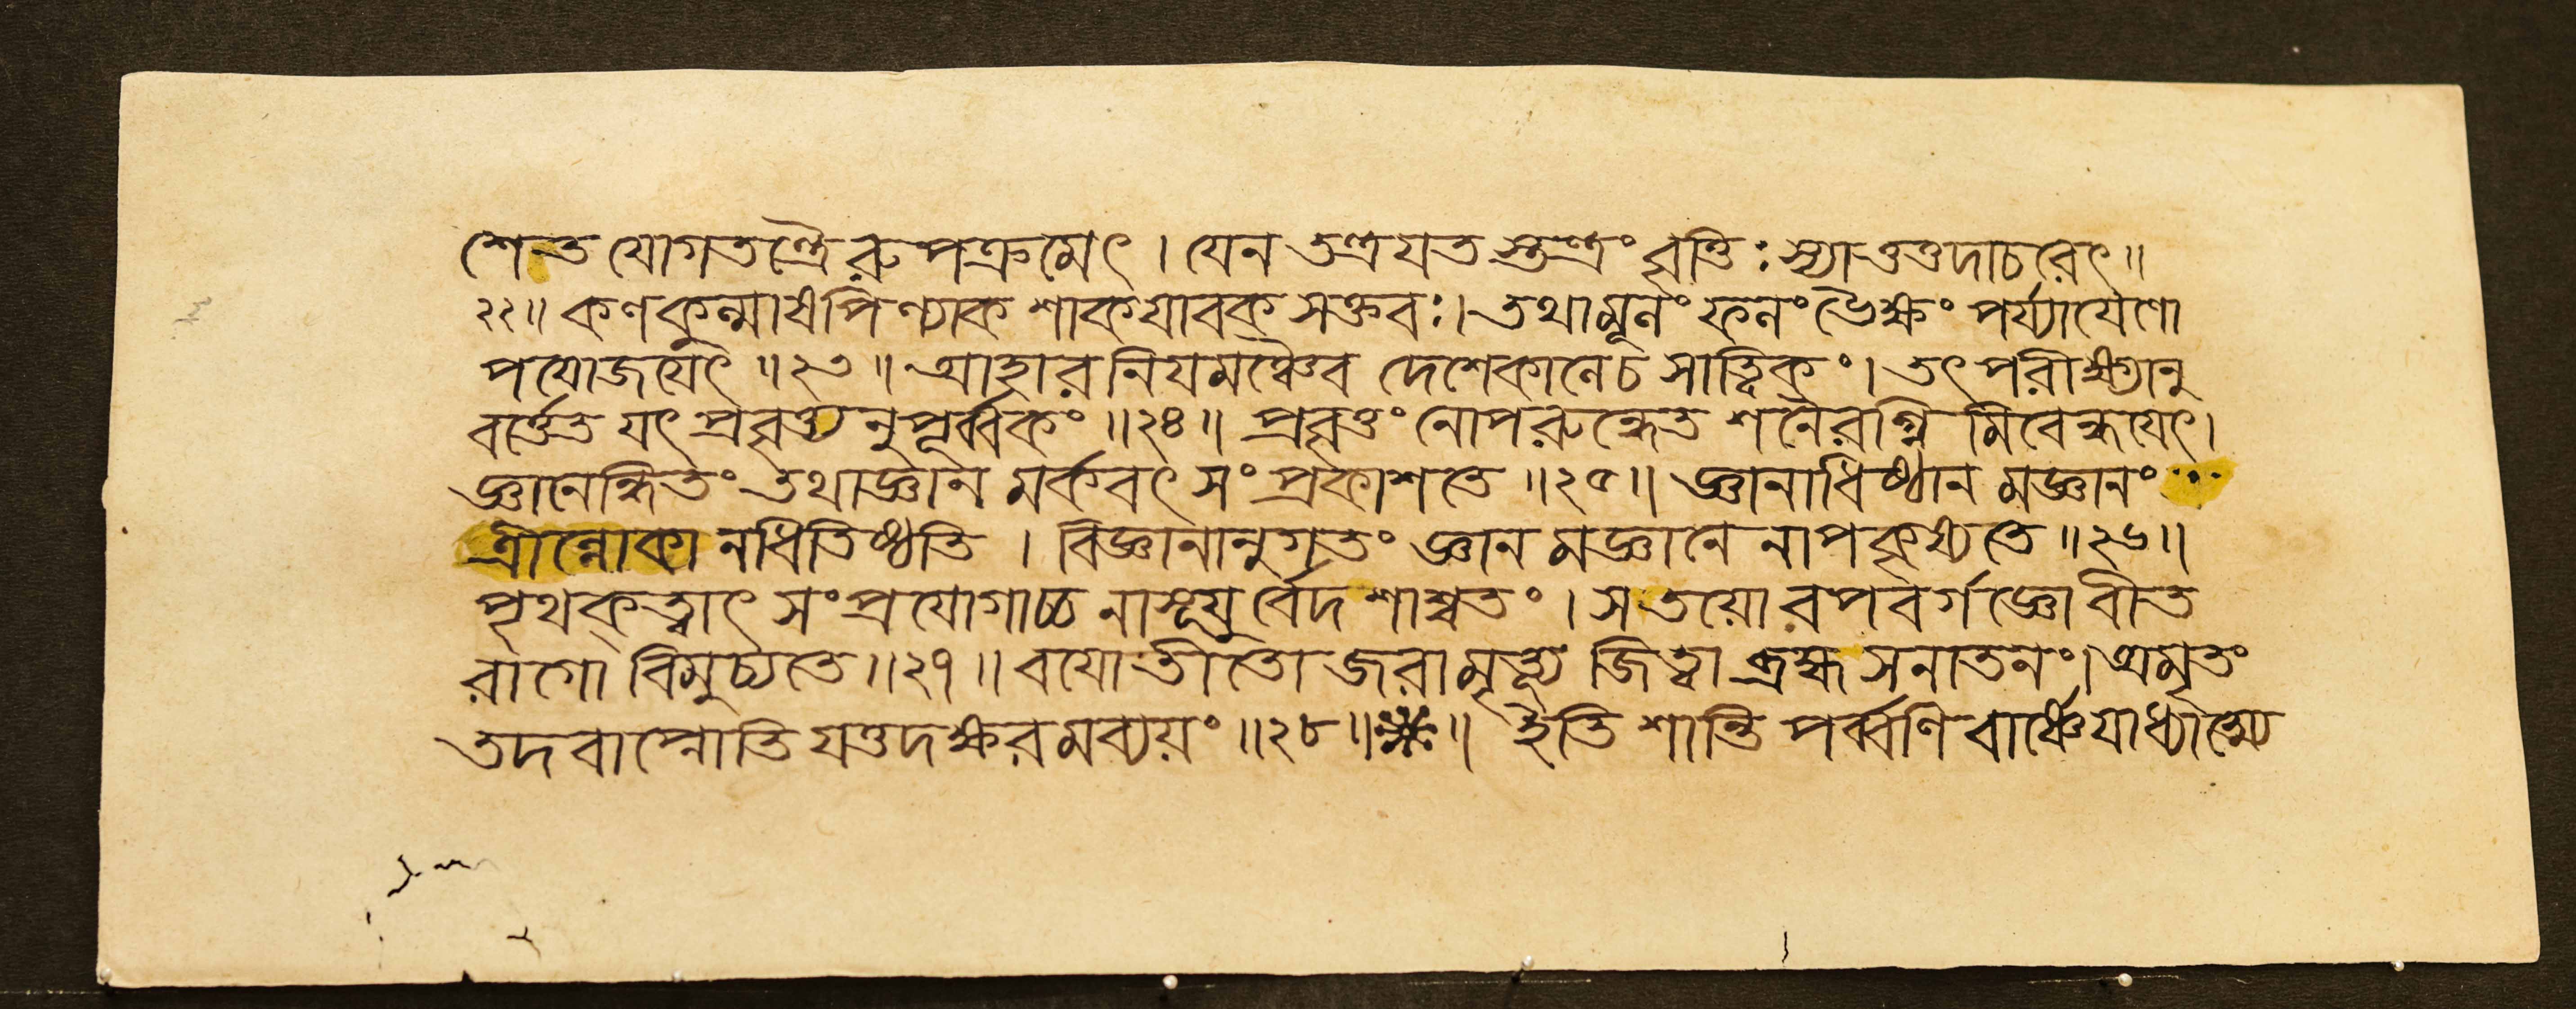 শেত যোগতন্ত্রৈরুপক্রমেৎ । যেন তন্ত্রযতস্তন্ত্রং বৃত্তি: স্যাত্ততদাচরেৎ ॥
২২॥ কণকুন্মাষপিণ্যাক শাকযাবক সক্তব:। তথামূনং ফনং ভৈক্ষং পর্য্যাযেণো
পযোজযেৎ ॥২৩॥ আহার নিযমঞ্চৈব দেশেকানেচ সাত্ত্বিকং। তৎ পরীক্ষ্যানু
বর্ত্তেত যৎ প্রবৃত্যনুপূর্ব্বকং ॥২৪॥ প্রবৃত্তং নোপরুন্ধেত শনৈরগ্নিমিবেন্ধযেৎ।
জ্ঞানেন্ধিতং তথাজ্ঞান মর্কবৎ সংপ্রকাশতে ॥২৫॥ জ্ঞানাধিষ্ঠান মজ্ঞানং
ত্রীন্নোকানধিতিষ্ঠতি । বিজ্ঞানানুগতং জ্ঞান মজ্ঞানে নাপকৃষ্যতে ॥২৬॥
পৃথক্ত্বাৎ সংপ্রযোগাচ্চ নাসূযুর্বেদ শাশ্বতং । স তয়োরপবর্গজ্ঞো বীত
রাগো বিমুচ্যতে ॥২৭॥ বযোতীতো জরামৃত্যূ জিত্বা ব্রহ্ম সনাতনং। অমৃতং
তদবাপ্নোতি যত্তদক্ষরমব্যয়ং ॥২৮॥※॥ ইতি শান্তি পর্ব্বণি বার্ষ্ণেযাধ্যাত্ম্যে